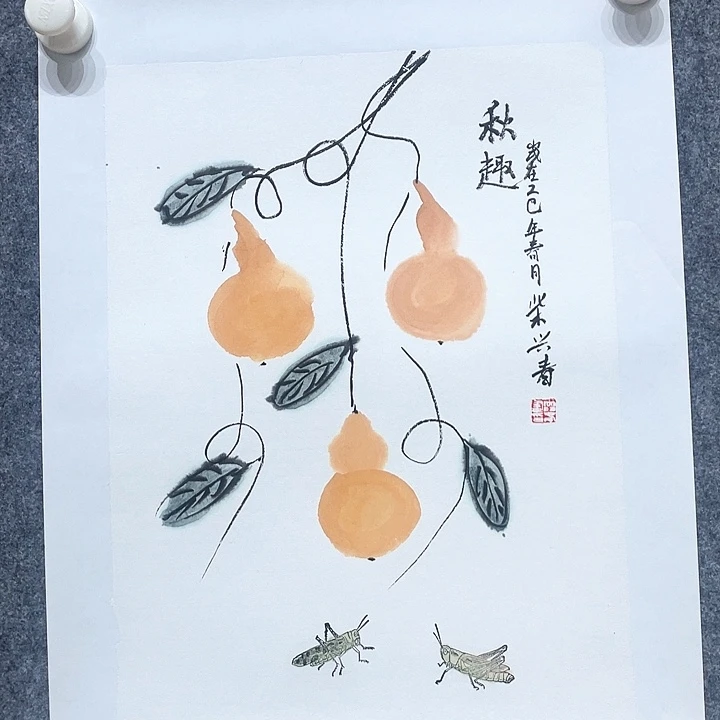 秋趣
岁在乙巳年春月柴兴春